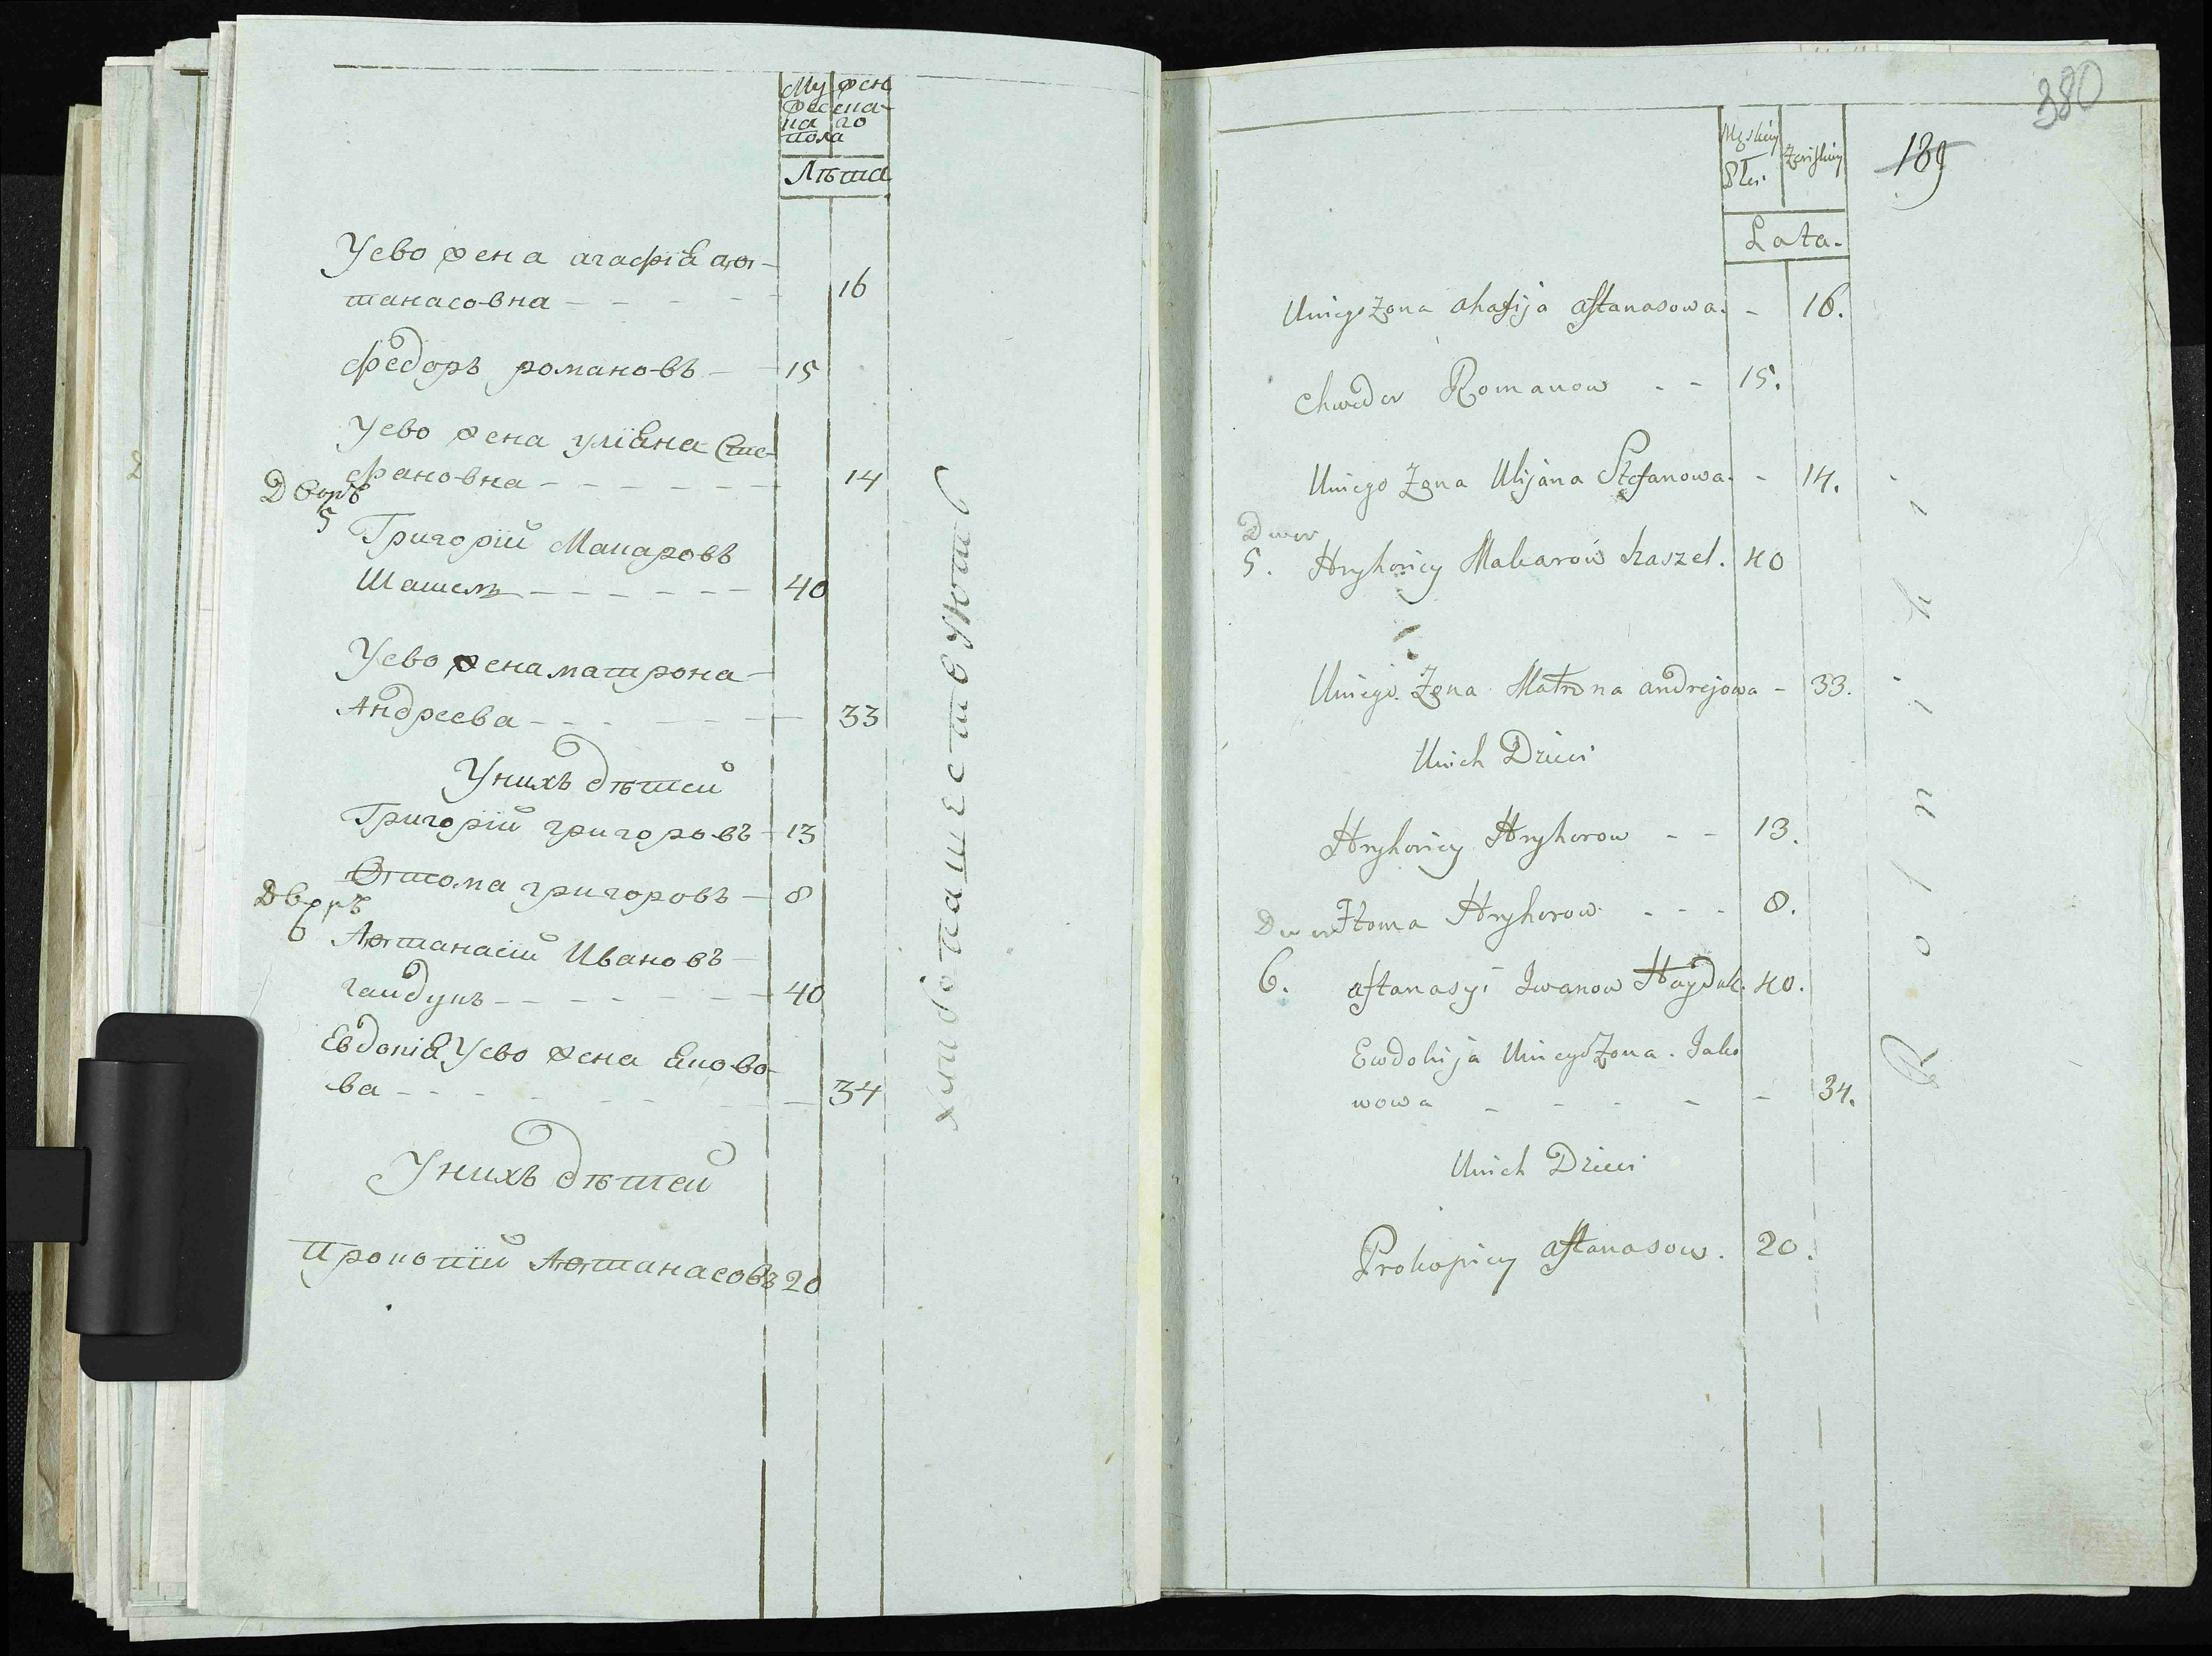 Му жен
жес ска
ка го
пола
Лѣта
Унево жена агафїа аѳ-
танасовна - - - - - 16
федоръ романовъ - 15
Унево жена улїана Сте-
фановна - - - - - - 14
Дворъ
5 Григорїй Макаровъ
Шашель - - - - - - 40
Унево жена матрона
Андреева - - - - - - 33
Унихъ дѣтей
Григорїй григоровъ 13
Ѳтома григоровъ - 8
Дворъ
6 Аѳтанасїй Ивановъ
гайдукъ - - - - - - 40
Евдокїа Унево жена Яково-
ва - - - - - - - - 34
Унихъ дѣтей
Прокопїй Аѳтанасовъ 20
хлѣбопашествуютъ
380
189
Męskiey Żeńskiey
Płci.
Lata.
Uniego Żona ahafija aftanasowa. - 16.
Chwedor Romanow - - 15.
Uniego Żona Ulijana Stefanowa. - 14.
Dwor
5. Hryhoriey Makarow Szaszel. 40
Uniego Żona Matrona andrejowa - 33.
Unich Dzieci
Hryhoriey Hryhorow - - 13.
Dwor Ftoma Hryhorow - - - 8.
6. aftanasyi Iwanow Hayduk. 40.
Ewdokija Uniego Żona. Jako
wowa - - - - - 34.
Unich Dzieci
Prokopiey aftanasow. 20.
Rolnihi